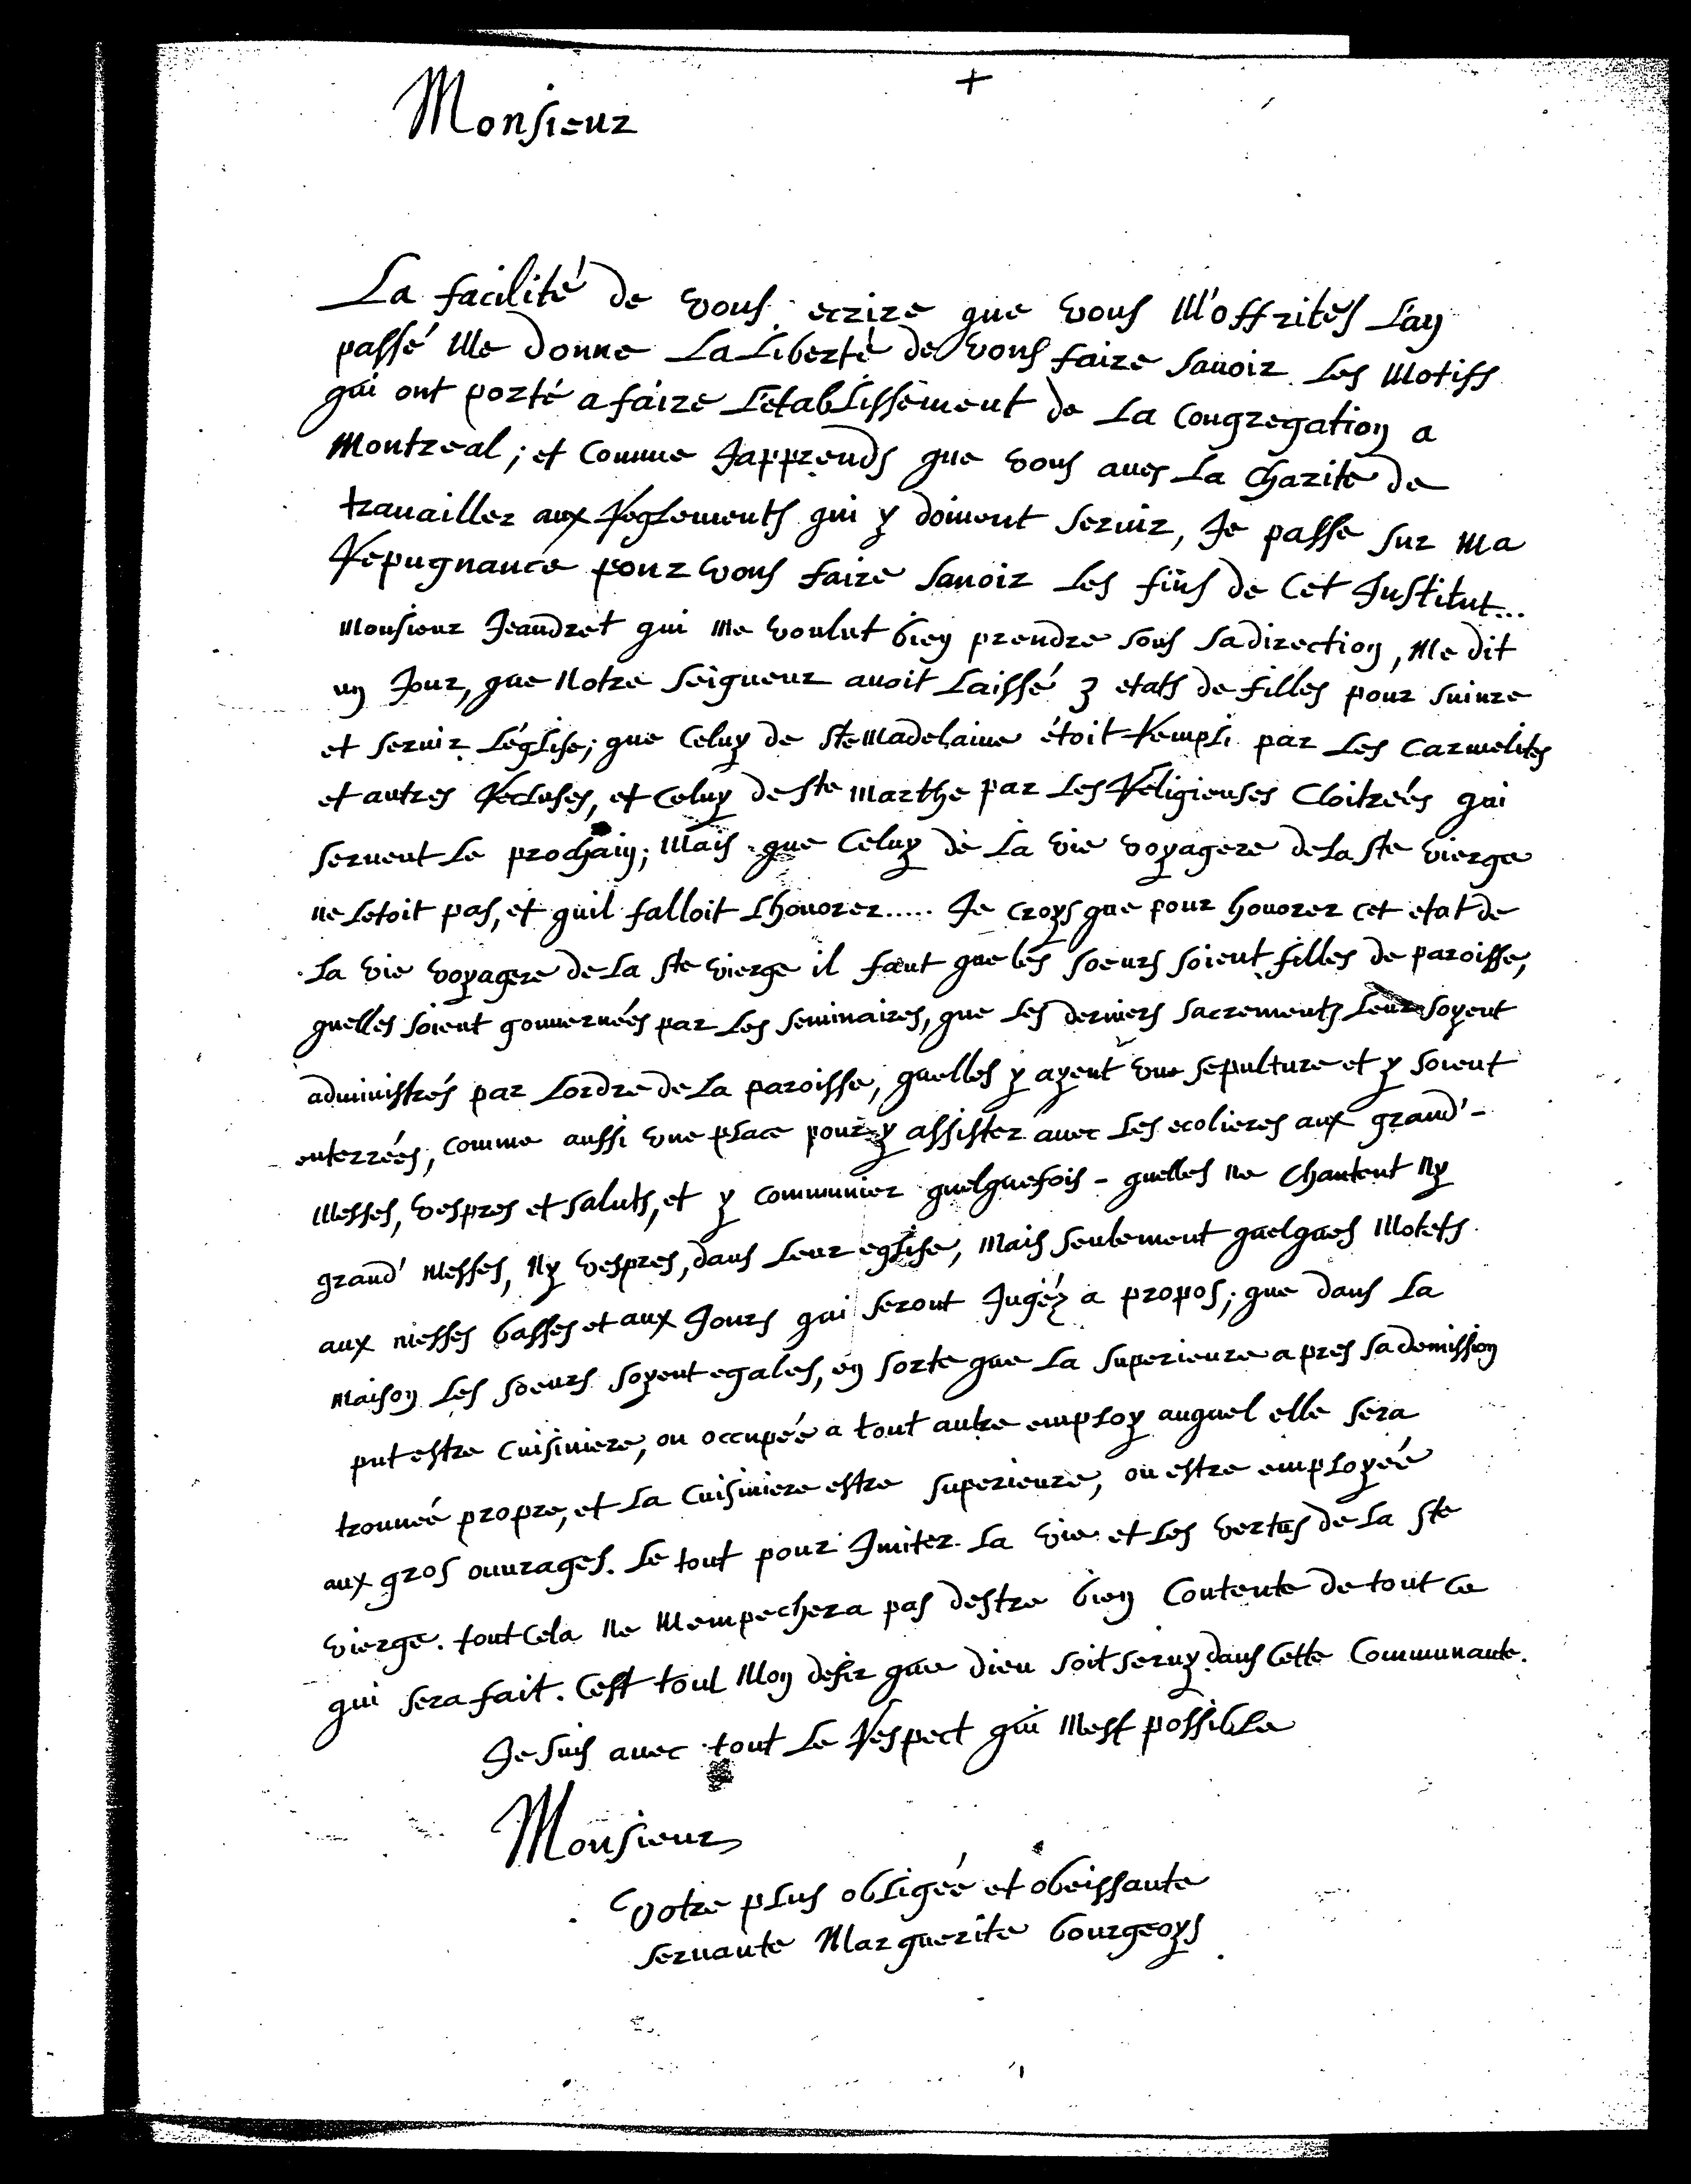 +
Monsieur
La facilité de vous ecrire que vous M'offrites L'an
passé Me donne La Liberté de vous faire savoir Les Motifs
qui ont porté a faire L'etablissement de La Congregation a
Montreal; et Comme Japprends que vous aues La Charité de
trauailler aux Reglements qui y doiuent seruir, Je passe sur Ma
Repugnance pour vous faire sauoir Les fins de Cet Institut...
Monsieur Jeandret qui Me voulut bien prendre sous sa direction, Me dit
un Jour, que Notre Seigneur auoit Laissé 3 etats de filles pour suiure
et seruir L'église; que Celuy de Ste Madelaine étoit Rempli par Les Carmelites
et autres Recluses, et Celuy de Ste Marthe par Les Religieuses Cloitrées qui
seruent Le prochain; Mais que Celuy de La vie voyagere de La Ste vierge
ne Letoit pas, et quil falloit Lhonorer..... Je croys que pour honorer cet etat de
La vie voyagere de La Ste vierge il faut que les soeurs soient filles de paroisse,
quelles soient gouuernées par Les seminaires, que Les derniers sacrements Leur soyent
administrés par Lordre de La paroisse, quelles y ayent vne sepulture et y soient
enterrées, comme aussi vne place pour y assister auec Les ecolieres aux grand'-
Messes, vespres et saluts, et y communier quelquefois - quelles Ne Chantent Ny
grand' Messes, Ny vespres, dans Leur eglise, Mais seulement quelques Motets
aux Messes basses et aux Jours qui seront Jugéz a propos; que dans La
Maison Les soeurs soyent egales, en sorte que La superieure apres sa demission
put estre Cuisiniere, ou occupée a tout autre employ auquel elle sera
trouuée propre, et La Cuisiniere estre superieure, ou estre employée
aux gros ouurages. Le tout pour Imiter La vie et Les vertus de La Ste
vierge. tout Cela Ne Mempechera pas destre bien Contente de tout Ce
qui sera fait. Cest tout Mon desir que dieu soit seruy dans Cette Communaute.
Je suis auec tout Le Respect qui Mest possible
Monsieur
Votre plus obligée et obeissante
seruante Marguerite bourgeoys